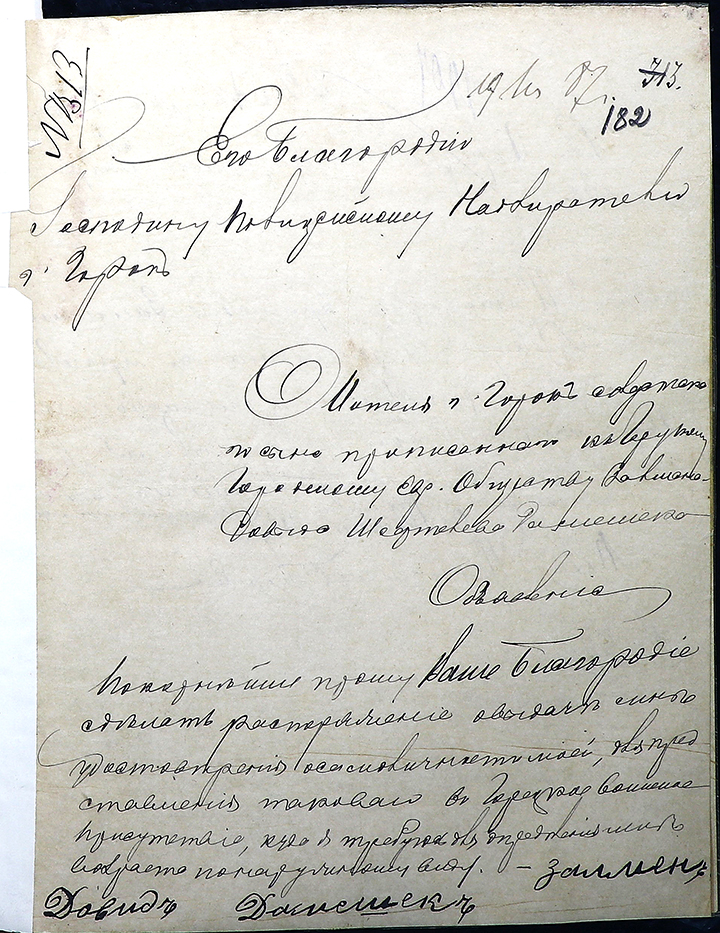 № 1313
87 г. 313.
182
Его Благородію
Господину Полицейскому Надзирателю
г. Горокъ
Жителя г. Горокъ солдатска
го сына приписаннаго къ
Горецкому Евр. Обществу Залмана
Давида Шевтелева
Объявленіе
Покорнѣйше прошу Ваше Благородіе
сдѣлать распоряженіе о выдачѣ мнѣ
удостовѣренія о самоличности моей, для пред
ставленія таковаго въ Горецкое воинское
Присутствіе, куда я требуюсь для опредѣленія мнѣ
возраста по наружному виду. — Залменъ
Давидъ Далешекъ